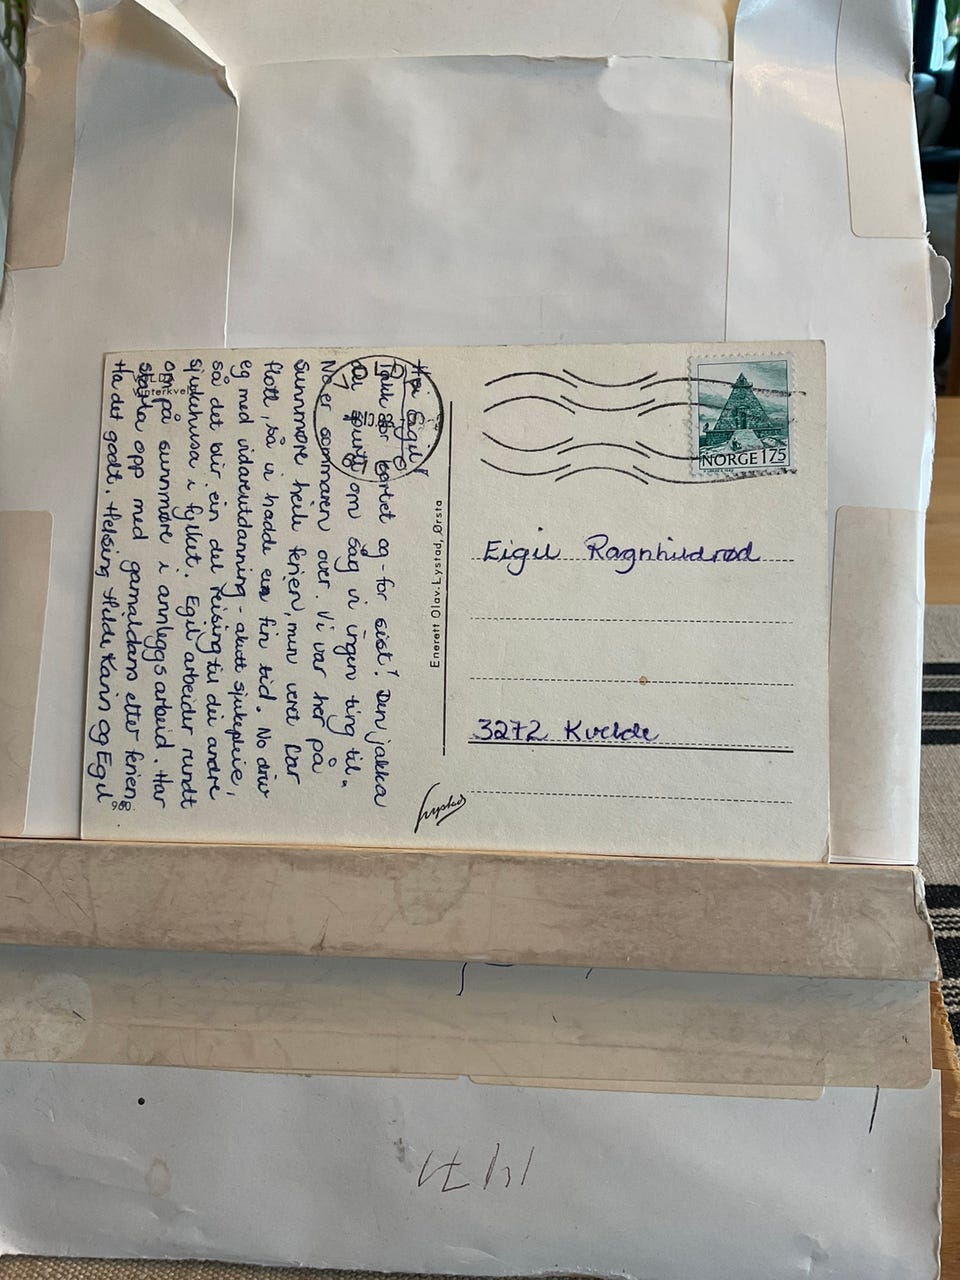 Hei Eigil!
Takk for kortet og - for sist! Den jakka
du spurde om såg vi ingen ting til.
No er sommaren over. Vi var her på
Sunnmøre heile ferien, men veret var
flott, så vi hadde ein fin tid. No driv
eg med vidareutdanning - akutt sjukepleie,
så det blir ein del reising til dei andre
sjukehusa i fylket. Egil arbeider rundt
om på sunnmøre i anleggsarbeid. Har
starta opp med gamaldans etter ferien.
Ha det godt. Helsing Hilde Karin og Egil
980.
Enerett Olav Lystad, Ørsta
NORGE 175
Eigil Ragnhildrød
3272 Kvelde